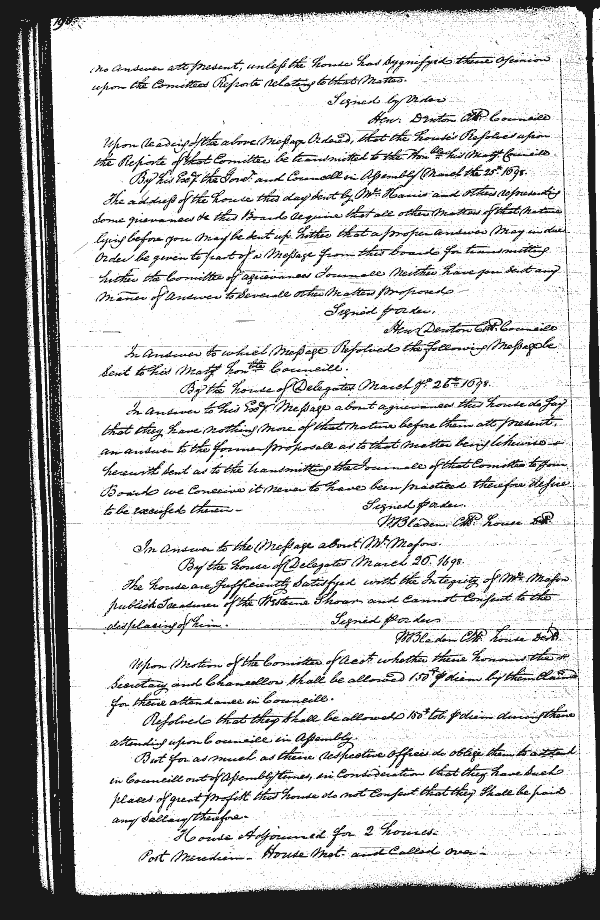 no Answer att present, unless the house has Sygnifyed there opinion
upon the Comittees Reporte relating to that Matter.
Signed by order
Hen: Denton Clk Councill
Upon reading of the above Message Ordered, that the house's Resolves upon
the Reporte of that Comittee be transmitted to the Honble his Matys Councill
By his Exy the Govr. and Councill in Assembly March the 25th 1698.
The address of the house this day sent by Mr. Harris and others representing
Some grievances to this Board require that all other Matters of that Nature
lying before you May be sent up hither that a proper Answer May in due
Order be given to part of a Message from this board for transmitting
hither the Comittee of agrievances Journall Neither have you sent any
Manner of Answer to Severall other Matters proposed
Signed p order.
Hen Denton Clk Councill
In Answer to which Message Resolved the following Message be
Sent to his Matys honble Councill.
By the house of Delegates March ye 26th 1698.
In Answer to his Exys Message about agrievances this house do Say
that they have nothing More of that Nature before them att present,
an answer to the former proposall as to that Matter being likewise
herewith sent as to the transmitting the Journall of that Comittee to your
Board we conceive it never to have been practiced therefore desire
to be excused therein
Signed p order.
W Bladen Clk house Del
In Answer to the Message about Mr Mason.
By the house of Delegates March 26. 1698.
The house are Sufficiently Satisfyed with the Integrity of Mr. Mason
publick Treasurer of the Westerne Shoar and Cannot Consent to the
displacing of him.
Signed p order
W Bladen Clk house Del.
Upon Motion of the Comittee of Acct. whether there honours the
Secretary and Chancellor shall be allowed 150 p diem by them
for there attendance in Councill.
Resolved that they Shall be allowed 150 tob. p diem during there
attending upon Councill in Assembly.
But for as much as there respective offices do oblige them to attend
in Councill out of Assembly times, in Consideration that they have Such
places of great profitt this house do not Consent that they Shall be paid
any Sallary therefore.
House Adjourned for 2 houres.
Post Meridiem. House Met. and Called over.